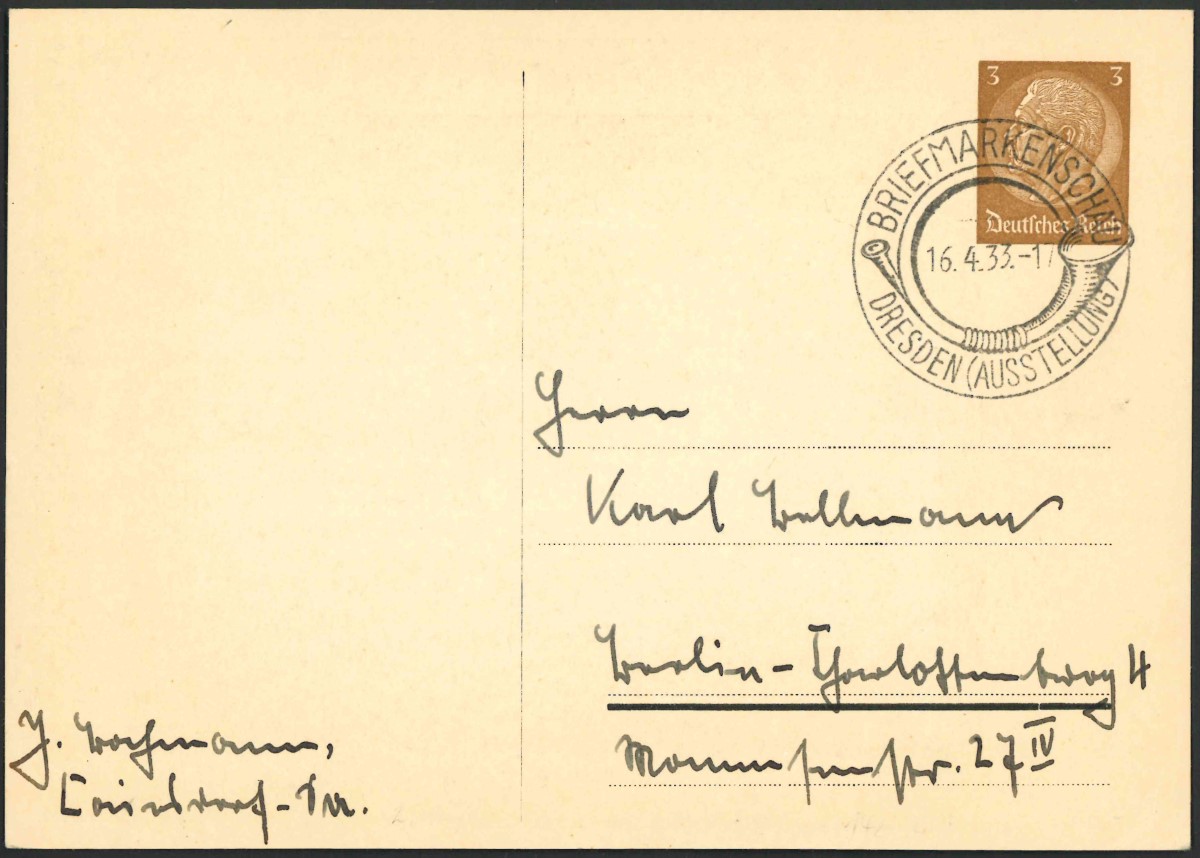 3 3
Deutsches Reich
BRIEFMARKENSCHAU
16.4.33.-17
DRESDEN (AUSSTELLUNG)
Herrn
Karl Bellmann
Berlin-Charlottenburg 4
Mommsenstr. 27 IV
J. Bochmann,
Cainsdorf-Sa.